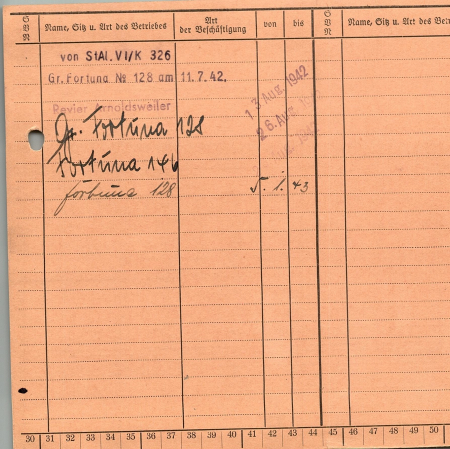 S B N Name, Sitz u. Art des Betriebes Art der Beschäftigung von bis S B N Name, Sitz u. Art des Betr
von StAl. VI/K 326
Gr. Fortuna № 128 am 11.7.42.
13. Aug. 1942
Revier Arnoldsweiler
26. Aug.
Gr. Fortuna 128
Fortuna 146
fortuna 128 5. 1. 43
30 31 32 33 34 35 36 37 38 39 40 41 42 43 44 45 46 47 48 49 50